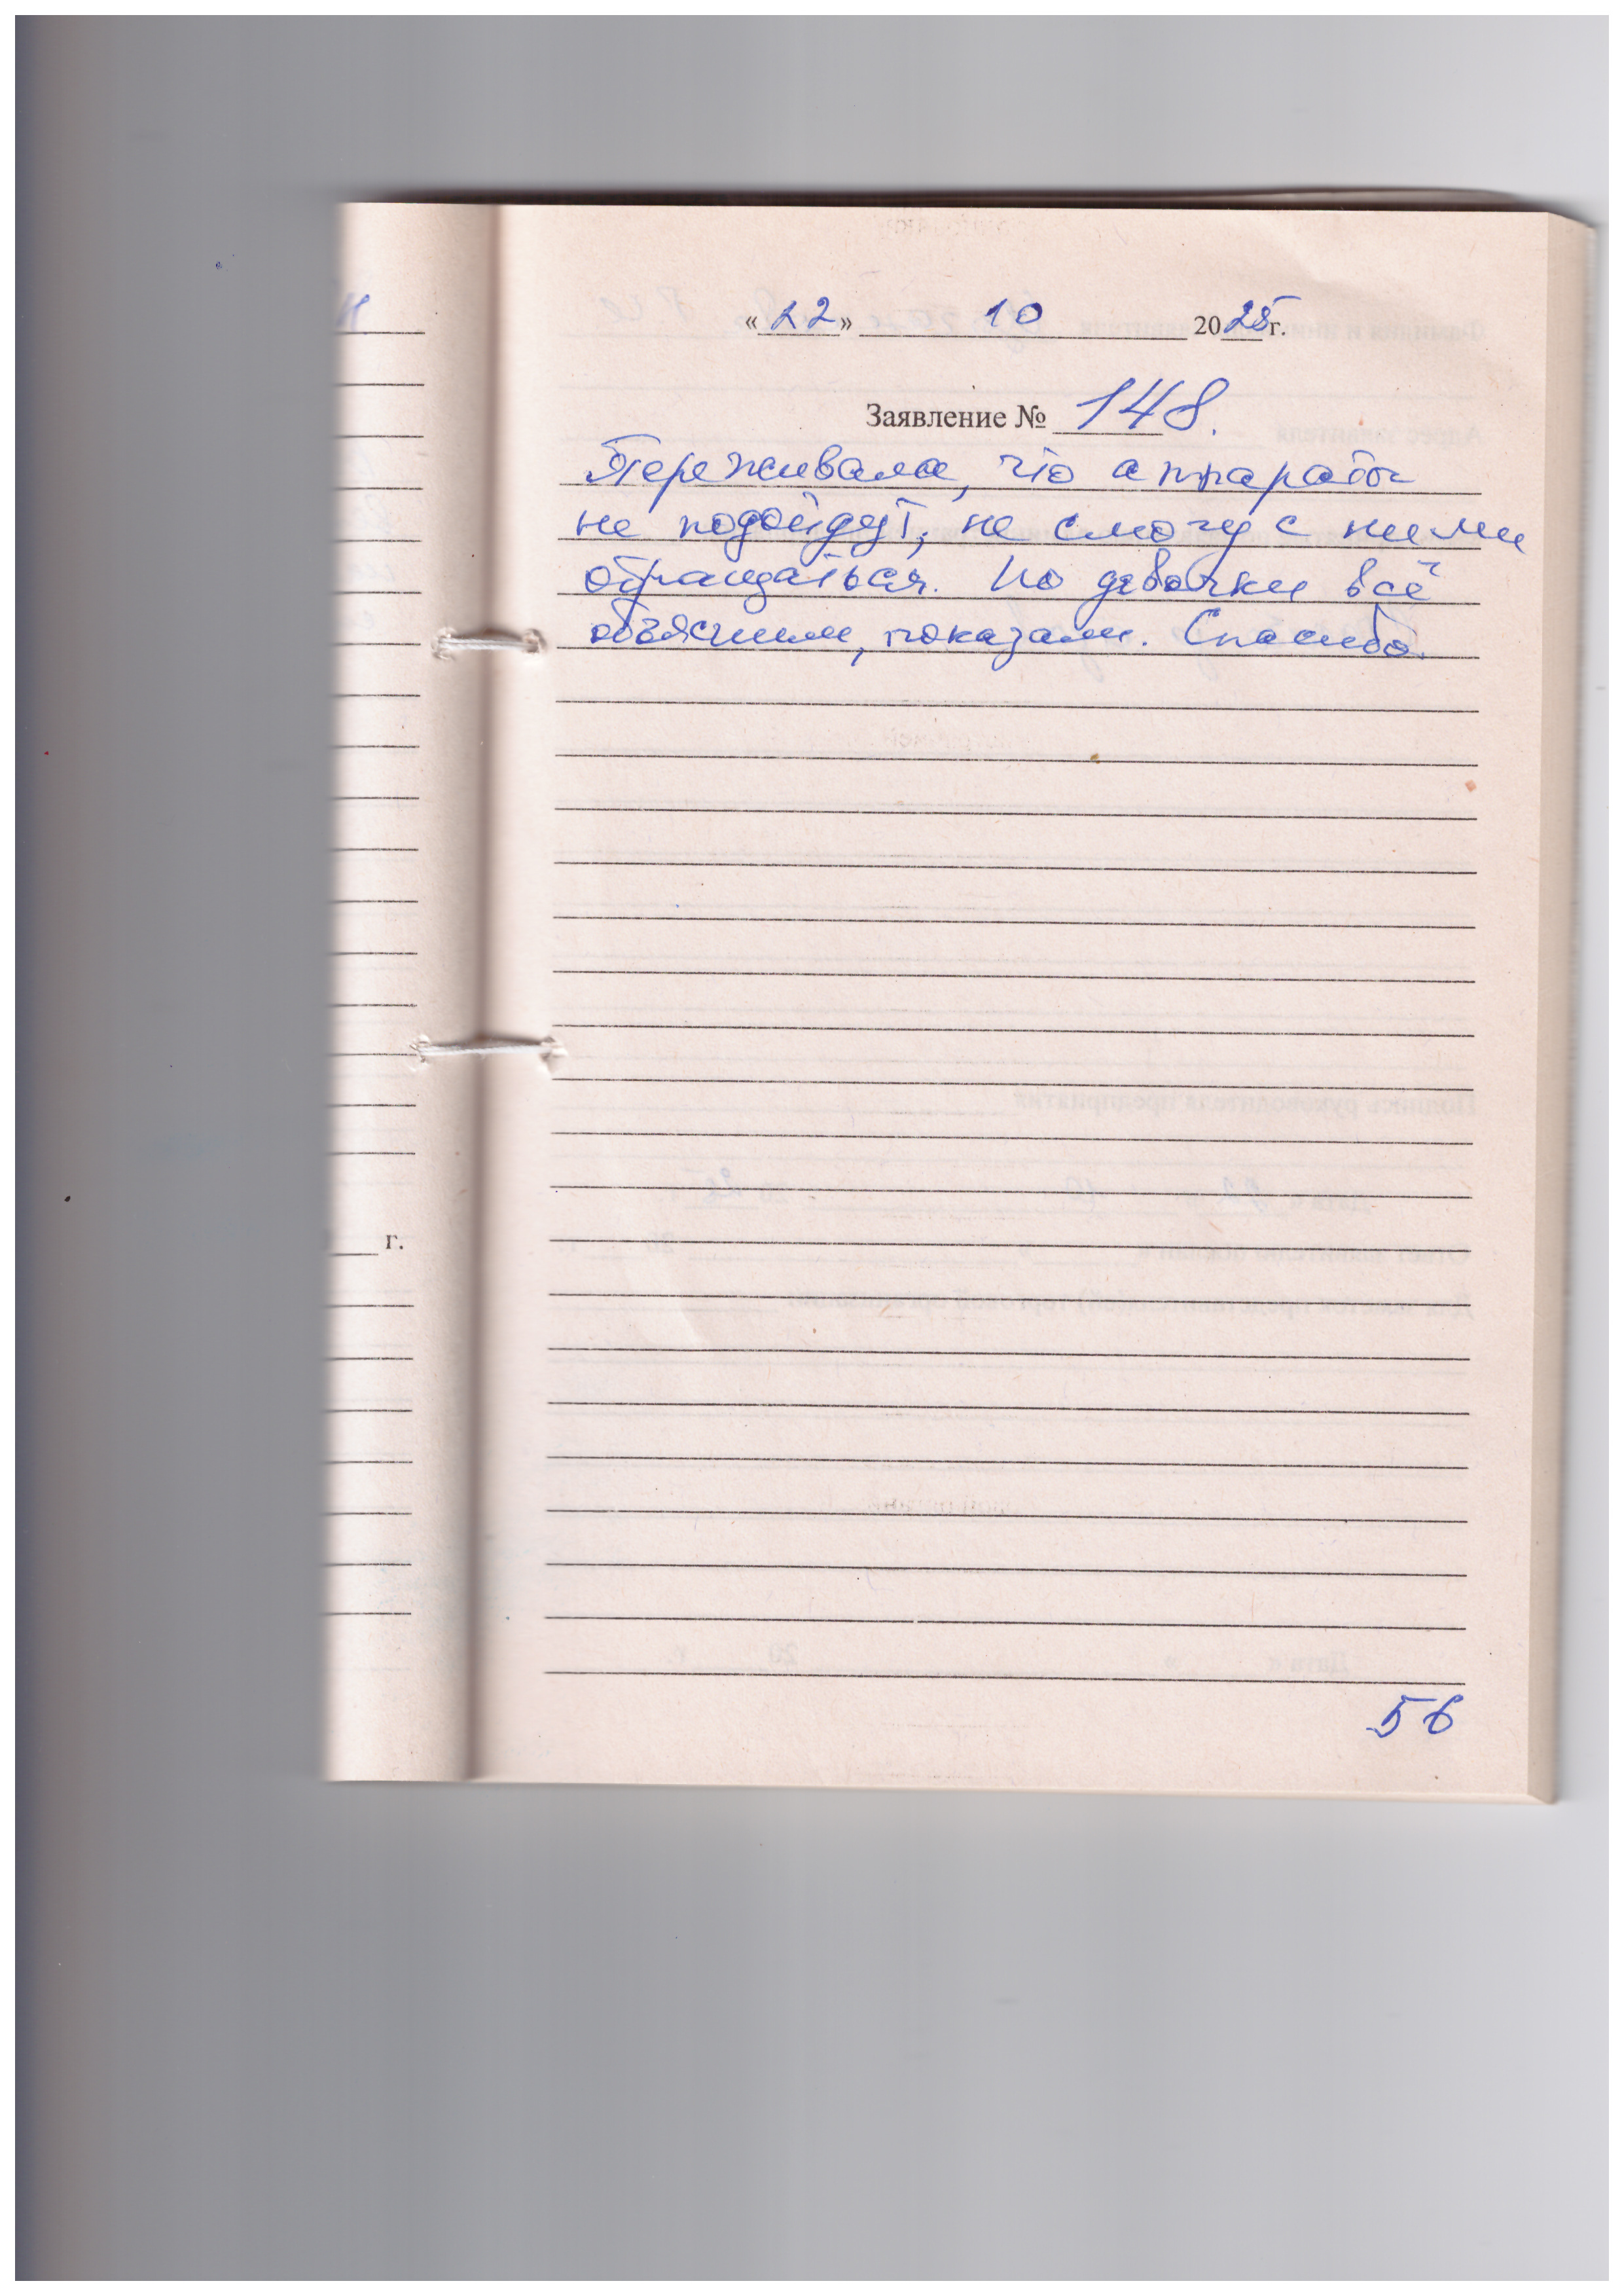 «22» 10 2025 г.
Заявление № 148.
Переживала, что аппараты
не подойдут, не смогу с ними
обращаться. Но девочки всё
объяснили, показали. Спасибо.
г.
56